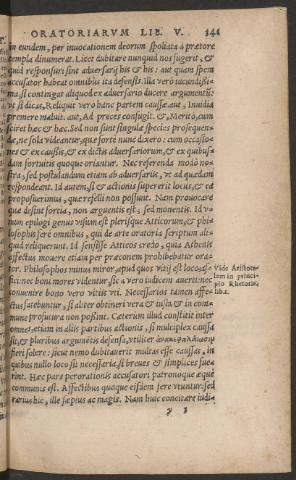 ORATORIARVM LIB. V. 241
in eundem, per inuocationem deorum spoliata à prætore
templa dinumerat. Licet dubitare nunquid nos fugerit, &
quid responsuri sint aduersarij his & his: aut quam spem
accusator habeat omnibus ita defensis. Illa verò iucundissi-
ma si contingat aliquod ex aduersario ducere argumentũ:
vt si dicas, Reliquit vero hanc partem caussæ aut, Inuidia
premere maluit. aut, Ad preces confugit. &, Meritò, cum
sciret hæc & hæc. Sed non sunt singulæ species prosequen-
dæ, ne sola videantur, quæ fortè nunc dixero: cum occasio-
nes & ex caussis, & ex dictis aduersariorum, & ex quibus-
dam fortuitis quoque oriantur. Nec referenda modò no-
stra, sed postulandum etiam ab aduersariis, vt ad quædam
respondeant. Id autem, si & actionis supererit locus, & ea
proposuerimus, quæ refelli non possunt. Nam prouocare
quæ desint fortia, non arguentis est, sed monentis. Id v-
num epilogi genus visum est plerisque Atticorum, & phi-
losophis fere omnibus, qui de arte oratoria scriptum ali-
quid reliquerunt. Id sensisse Atticos credo, quia Athenis
affectus mouere etiam per præconem prohibebatur ora-
tor. Philosophos minus miror, apud quos vitij est loco, af-
fici: nec boni mores videntur, sic à vero iudicem auerti: nec
conuenire bono vero vitiis vti. Necessarios tamen affe-
ctus fatebuntur, si aliter obtineri vera & iusta & in com-
mune profutura non possint. Cæterum illud constitit inter
omnes, etiam in aliis partibus actionis, si multiplex caussa
sit, & pluribus argumẽtis defensa, vtiliter ἀνακεφαλαίωσιν
fieri solere: sicut nemo dubitauerit multas esse caussas, in
quibus nullo loco sit necessaria, si breues & simplices fue-
rint. Hæc pars perorationis accusatori patronoque æquè
communis est. Affectibus quoque eisdem fere vtuntur: sed
rariùs hic, ille sæpius ac magis. Nam huic concitare iudi-
Vide Aristote-
lem in princi-
pio Rhetoric.
lib. 1.